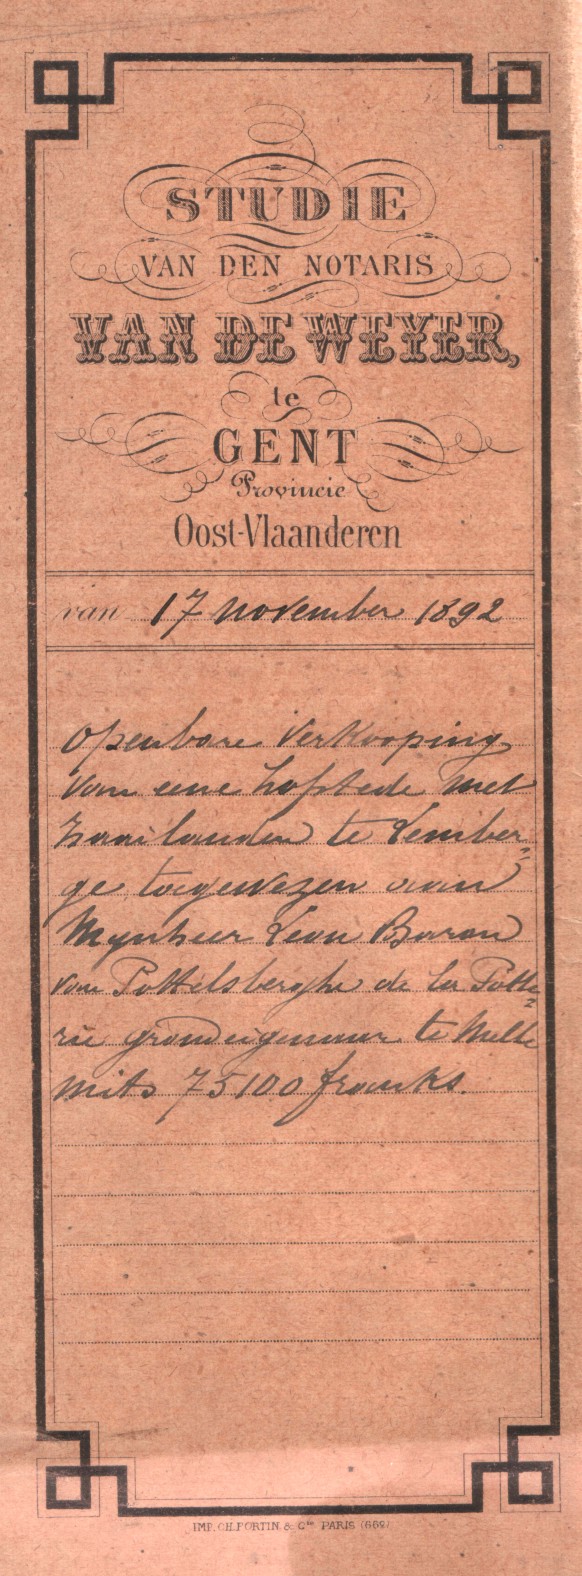 STUDIE
VAN DEN NOTARIS
VAN DE WEYER,
te
GENT
Provincie
Oost-Vlaanderen
van 17 november 1892
Openbare Verkooping
van eene hofstede met
zaailanden te Lember=
ge toegewezen aan
Mynheer Leon Baron
van Pottelsberghe de la Potte=
rie grondeigenaar te Melle
mits 75100 franks.
IMP. CH. FORTIN & Cie PARIS (669)